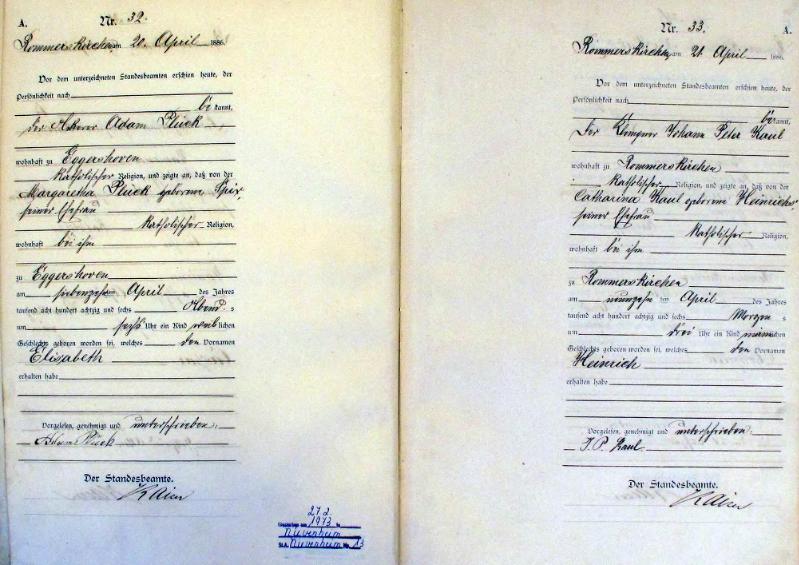 A.
Nr. 32.
Rommerskirchen am 20. April 1886.
Vor dem unterzeichneten Standesbeamten erschien heute, der
Persönlichkeit nach
bekannt,
der Ackerer Adam Plück
wohnhaft zu Eggershoven
katholischer Religion, und zeigte an, daß von der
Margaretha Plück geborene Spix,
seiner Ehefrau
katholischer Religion,
wohnhaft bei ihm
zu Eggershoven
am siebenzehn April des Jahres
tausend acht hundert achtzig und sechs Abends
um sechs Uhr ein Kind weiblichen
Geschlechts geboren worden sei, welches den Vornamen
Elisabeth
erhalten habe
Vorgelesen, genehmigt und unterschrieben:
Adam Plück
Der Standesbeamte.
27 2.
1973
Nivenheim
StA. Nivenheim Nr. 13
Nr. 33.
A.
Rommerskirchen am 21. April 1886.
Vor dem unterzeichneten Standesbeamten erschien heute, der
Persönlichkeit nach
bekannt,
der Johann Peter Kaul
wohnhaft zu Rommerskirchen
katholischer Religion, und zeigte an, daß von der
Catharina Kaul geborene Heinrichs,
seiner Ehefrau
katholischer Religion,
wohnhaft bei ihm
zu Rommerskirchen
am neunzehn ten April des Jahres
tausend acht hundert achtzig und sechs Morgens
um drei Uhr ein Kind männlichen
Geschlechts geboren worden sei, welches den Vornamen
Heinrich
erhalten habe
Vorgelesen, genehmigt und unterschrieben:
J. P. Kaul
Der Standesbeamte.